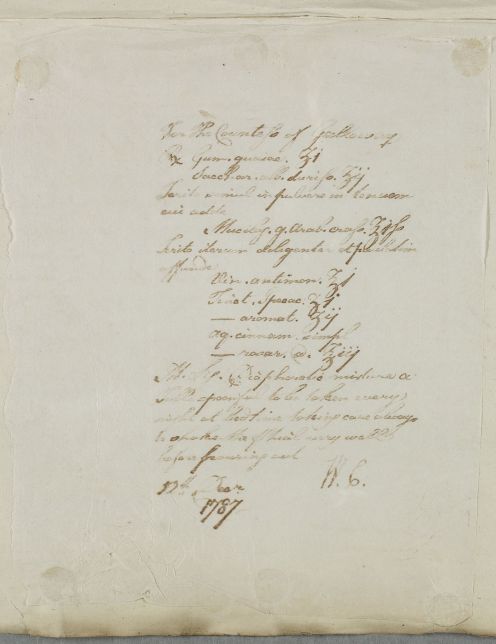 For the Countess of Galloway
℞ Gum. guaiac. ʒi
Sacchar. alb. duriss. ʒij
Terito simul in pulverem tenuem
cui adde
Mucilag. g. arab. crass. ʒiſs
Terito iterum diligenter et paulatim
affunde
Vin. antimon. ʒi
Tinct. Ipecac. ʒi
— aromat. ʒij
aq. cinnam. simpl.
— rosar. a. ʒiij
M. Diaphoretic mixture a
spoonful to be taken every
night at bedtime taking care always
to shake the Phial very well
before pouring out
W. C.
1787